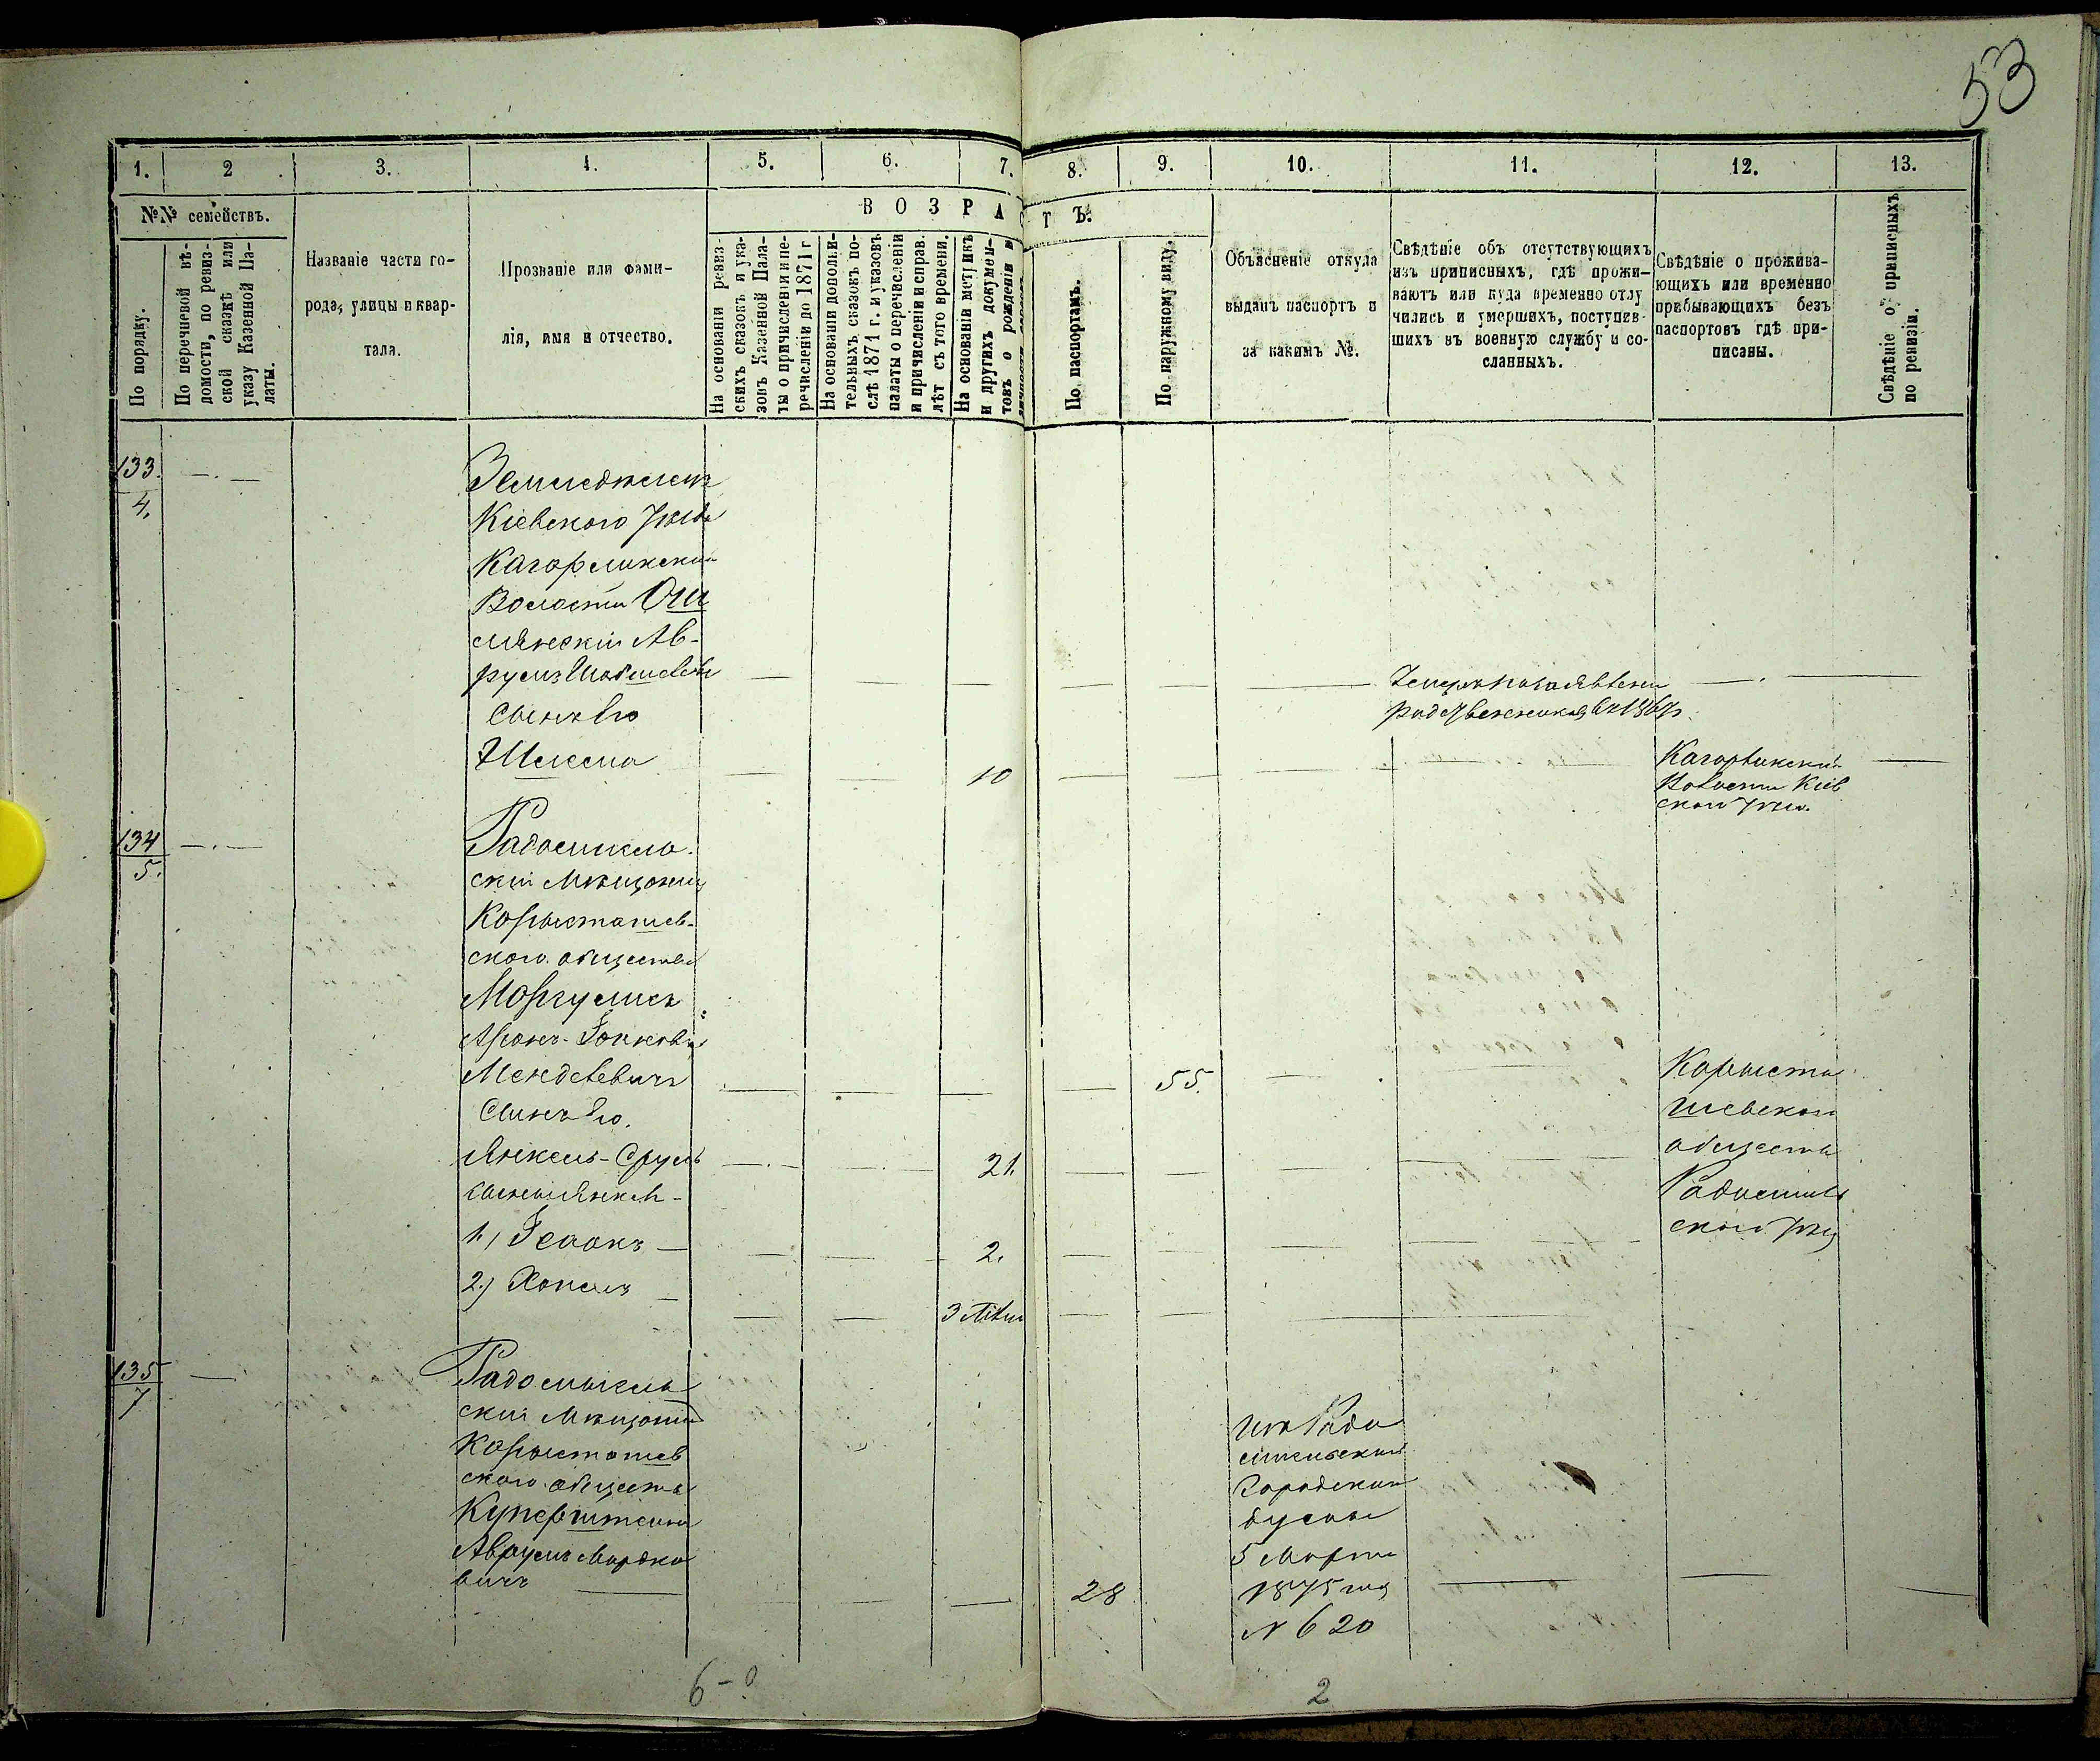 53
1. 2 3. 4. 5. 6. 7. 8. 9. 10. 11. 12. 13.
№№ семействъ.
ВОЗРАСТЪ.
По порядку.
По перечневой вѣ-
домости, по ревиз-
ской сказкѣ или
указу Казенной Па-
латы.
Названіе части го-
рода, улицы и квар-
тала.
Прозваніе или фами-
лія, имя и отчество.
На основаніи ревиз-
скихъ сказокъ и ука-
зовъ Казенной Пала-
ты о причисленіи и пе-
речисленіи до 1871 г
На основаніи дополни-
тельныхъ сказокъ по-
слѣ 1871 г. и указовъ
палаты о перечисленіи
и причисленіи и справ.
лѣт съ того времени.
На основаніи метрикъ
и другихъ докумен-
товъ о рожденіи и
По паспортамъ.
По наружному виду.
Объясненіе откуда
выданъ паспортъ и
за какимъ №.
Свѣдѣніе объ отсутствующихъ
изъ приписныхъ, гдѣ прожи-
ваютъ или куда временно отлу
чились и умершихъ, поступив-
шихъ въ военную службу и со-
сланныхъ.
Свѣдѣніе о прожива-
ющихъ или временно
пребывающихъ безъ
паспортовъ гдѣ при-
писаны.
Свѣдѣніе о приписныхъ
по ревизіи.
133.
4.
Земледѣлецъ
Кіевского Уѣзда
Кагорликской
Волости Ош
мянскій Ав-
румъ
Сынъ Его
Шлема
10
въ 1867г.
Кагорликской
Волости Кіев
ского Уѣзд.
134
5.
Радомисль-
скій Мѣщанинъ
Коростышев-
ского общества
Моргулисъ
Аронъ-
Менделевичъ
55.
Сынъ Его.
Янкель-Сруль
21.
сыновья Янкел-
1, Ісаакъ
2.
2) Хаимъ
3 мѣсяц
Коросты
шевского
общества
Радомысль
ского Уѣзд
135
7
Радомысль
скій Мѣщанинъ
Коростышев
ского общества
Куперштейнъ
Аврумъ Мордко
вичъ
28
Изъ Радо
мысльской
Городской
Думы
5 Марта
1875 года
№ 620
6-0
2